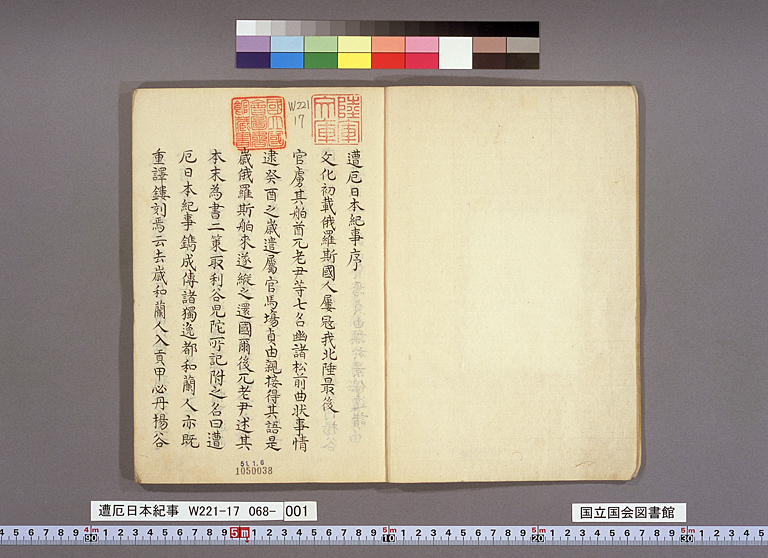 陸軍
文庫
國立國
會圖書
館藏書
W221
17
遭厄日本紀事序
文化初載俄羅斯國人屢冦我北陸最後
官虜其舶酋兀老尹等七名幽諸松前曲状事情
逮癸酉之歳遣屬官馬塲貞由親接得其語是
歳俄羅斯舶來遂縱之還國爾後兀老尹述其
本末為書二策取利谷児陀所記附之名曰遭
厄日本紀事鐫成傳諸獨逸都和蘭人亦既
重譯鏤刻焉云去歳和蘭人入貢甲必丹揚谷
51.1.6
1050038
遭厄日本紀事 W221-17 068- 001
国立国会図書館